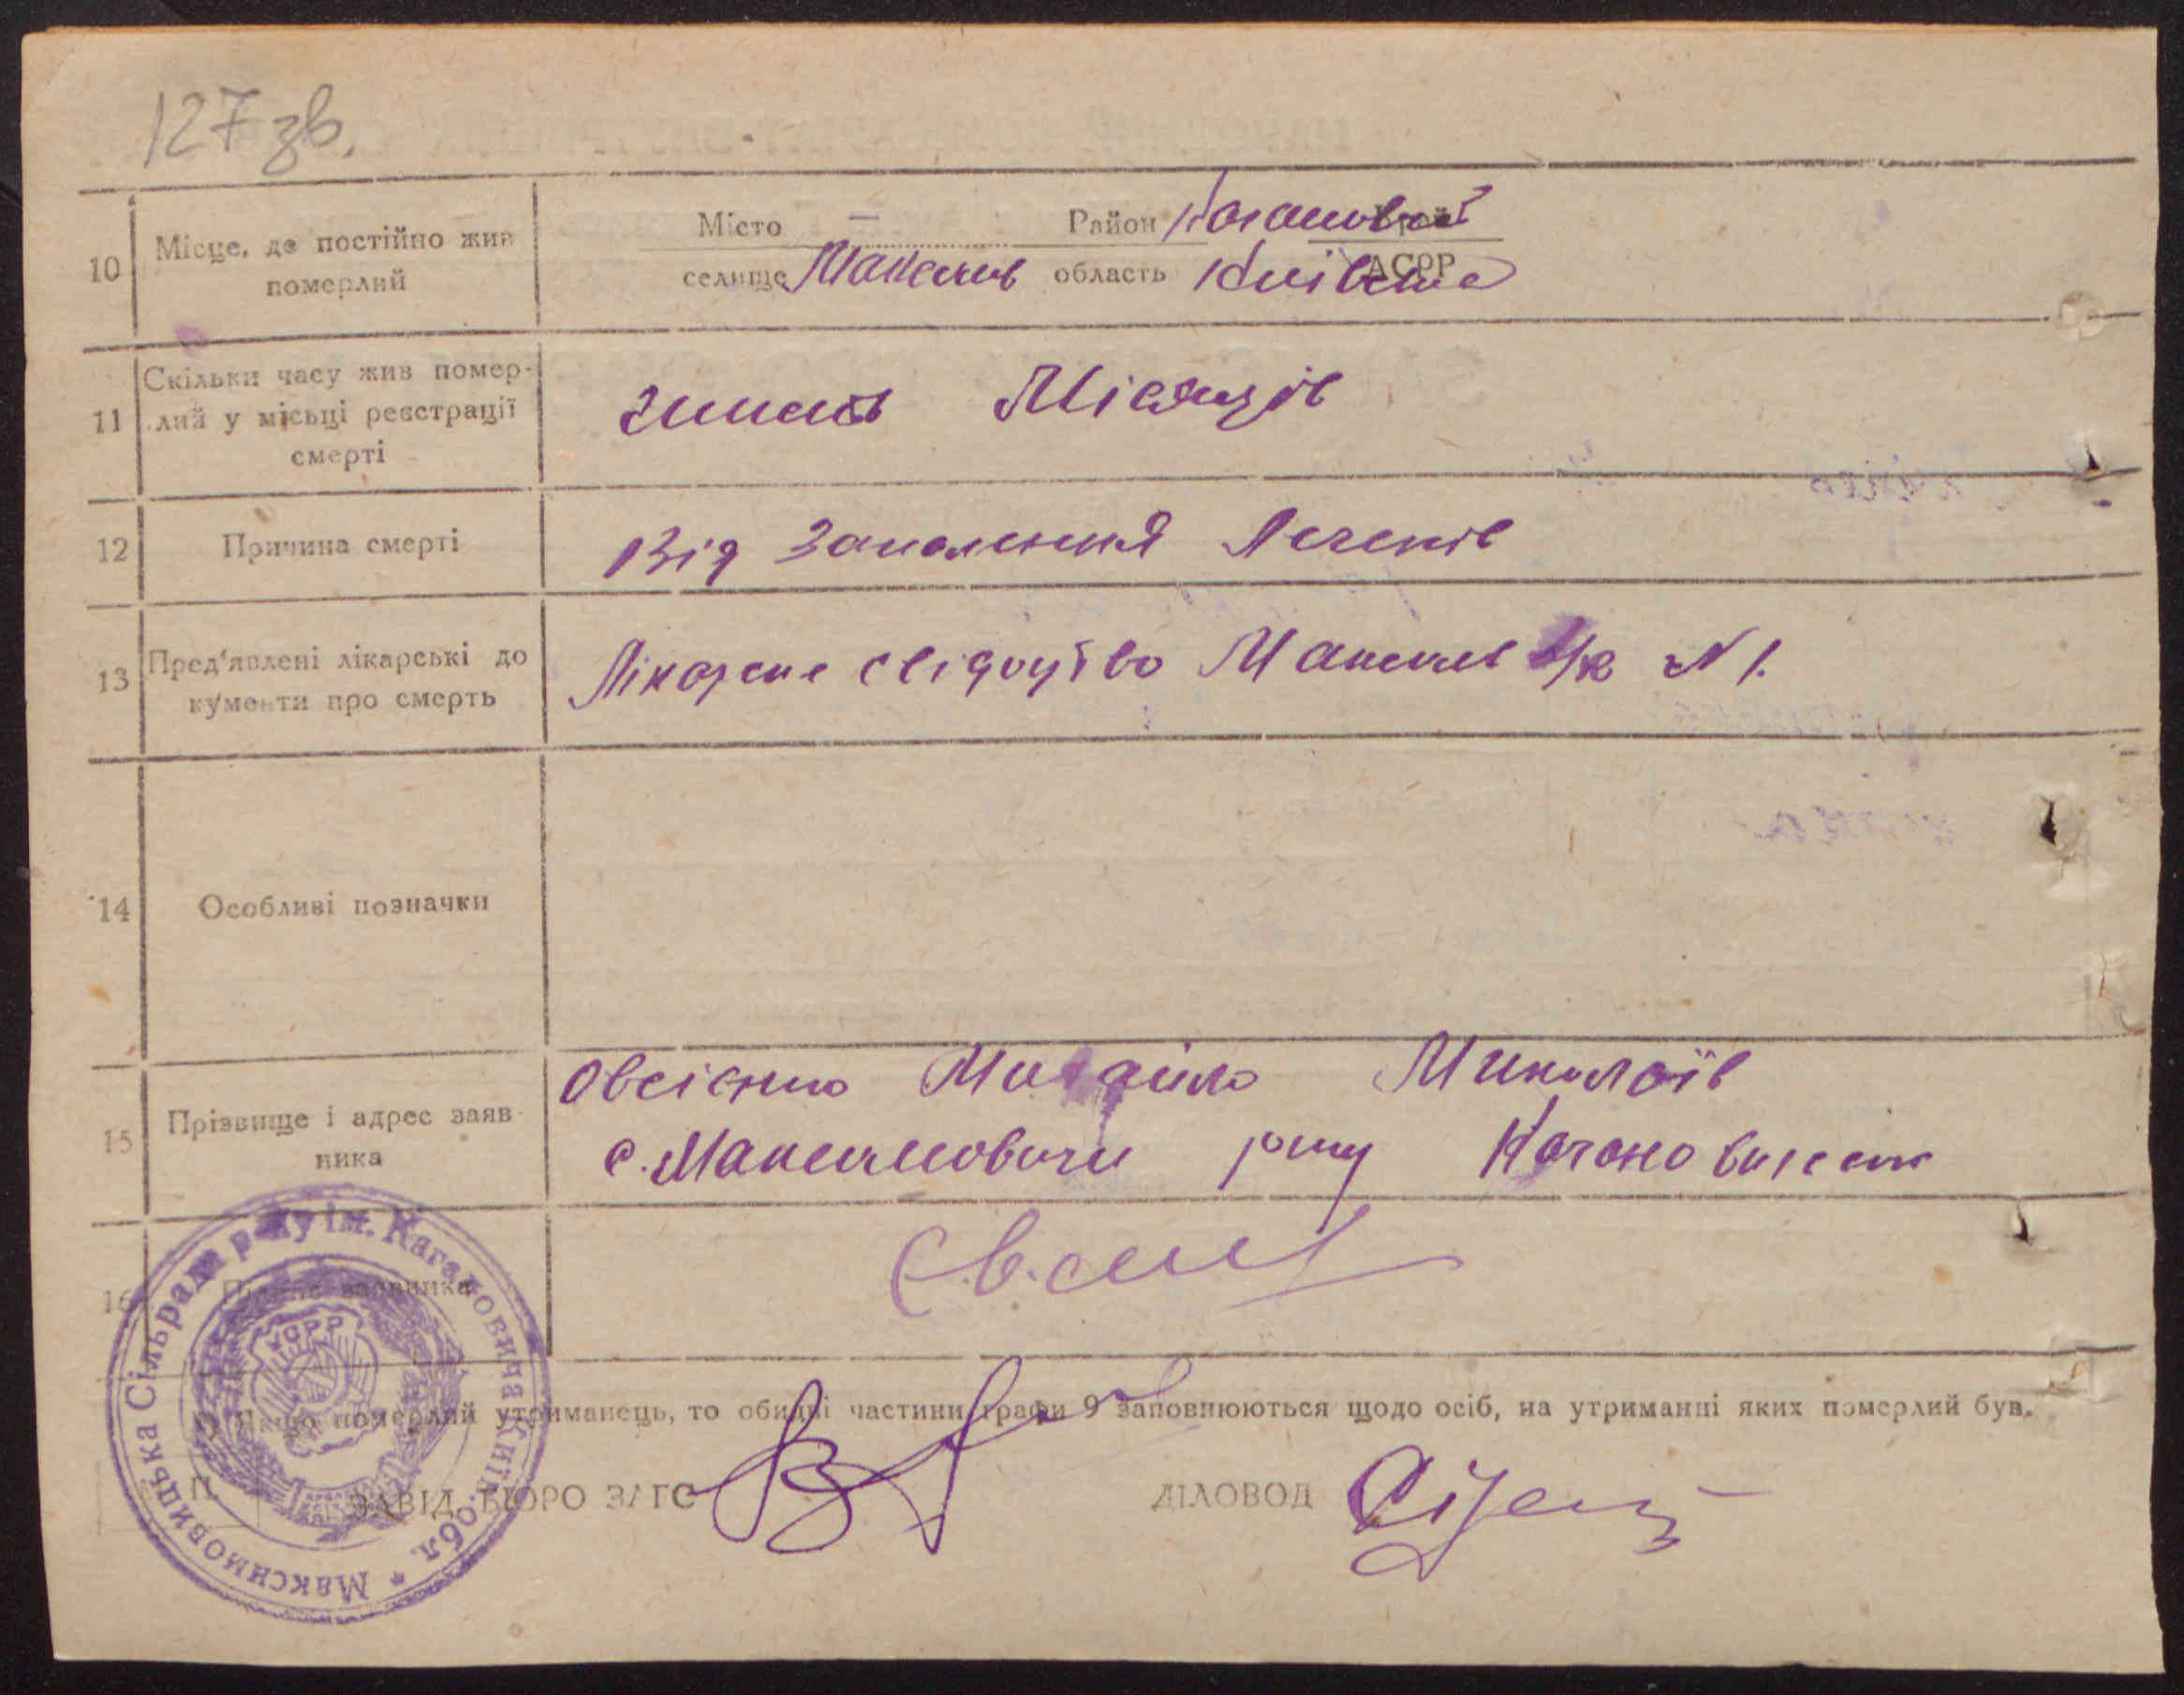 127 зв.
10 Місце, де постійно жив померлий
Місто — Район Каганов. Край
селище Максим область Київська АСРР
11 Скільки часу жив помер-
лий у місьці реєстрації
смерті
Місяців
12 Причина смерті
Від Запалення Легенів
13 Пред'явлені лікарські до
кументи про смерть
Лікарське свідоцтво Максим N 1.
14 Особливі позначки
15 Прізвище і адрес заяв-
ника
Овсієнко Михайло Миколаїв
с. Максимовичи р-ну Кагановичського
16 Підпис заявника
*) Якщо померлий утриманець, то обидві частини графи 9 заповнюються щодо осіб, на утриманні яких померлий був.
П. ЗАВІД. БЮРО ЗАГС ДІЛОВОД
Максимовицька Сільрада р-ну ім. Кагановича Київ. обл. *
УСРР